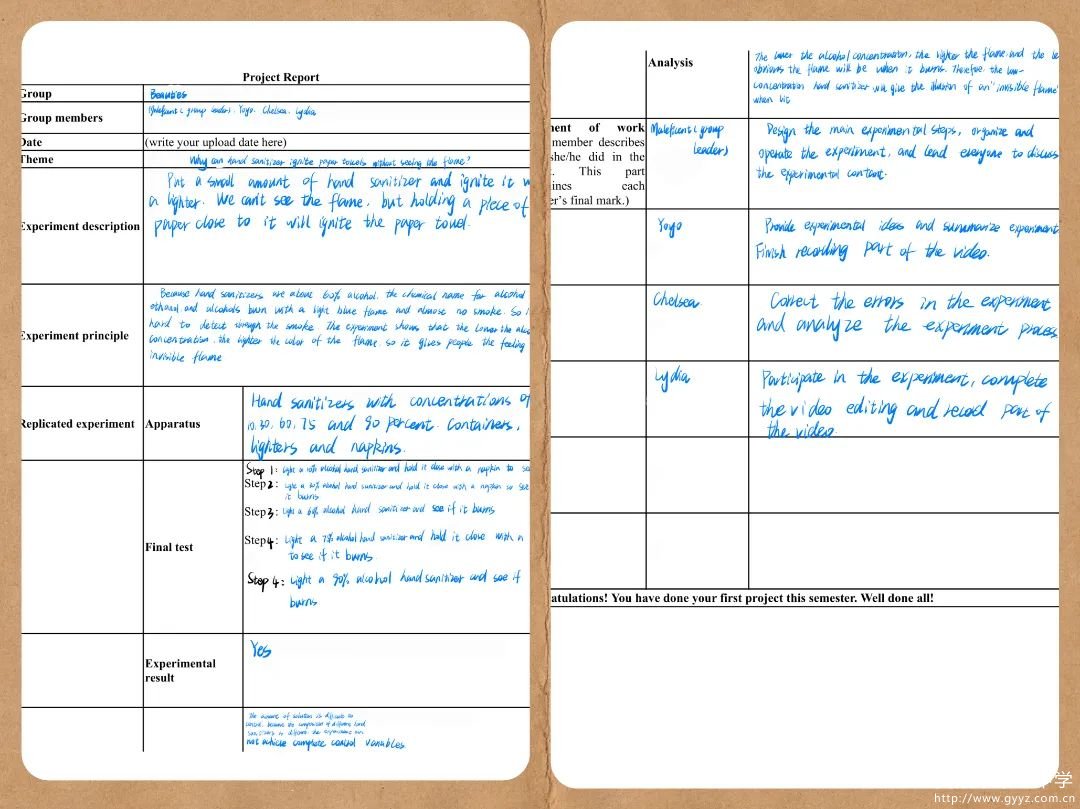 Project Report
Group
Beauties
Group members
Maleficent (group leader), Yoyo, Chelsea, Lydia
Date
(write your upload date here)
Theme
Why can hand sanitizer ignite paper towels without seeing the flame?
Experiment description
Put a small amount of hand sanitizer and ignite it w
a lighter. We can't see the flame, but holding a piece of
paper close to it will ignite the paper towel.
Experiment principle
Because hand sanitizers are above 60% alcohol, the chemical name for alcohol
ethanol and alcohols burn with a light blue flame and almost no smoke. So i
hard to detect through the smoke. The experiment shows that the lower the alco
concentration, the lighter the color of the flame, so it gives people the feeling
invisible flame
Replicated experiment
Apparatus
Hand sanitizers with concentrations of
10, 30, 60, 75 and 90 percent. Containers,
lighters and napkins.
Final test
Step 1: Light a 10% alcohol hand sanitizer and hold it close with a napkin to se
Step 2: Light a 30% alcohol hand sanitizer and hold it close with a napkin to see
it burns
Step 3: Light a 60% alcohol hand sanitizer and see if it burns
Step 4: Light a 75% alcohol hand sanitizer and hold it close with a
to see if it burns
Step 4: Light a 90% alcohol hand sanitizer and see if
burns
Experimental
result
Yes
The amount of solution is difficult to
control, because the composition of different hand
sanitizers is different, the experiment can
not achieve complete control variables.
Analysis
The lower the alcohol concentration, the lighter the flame, and the le
obvious the flame will be when it burns. Therefore, the low-
concentration hand sanitizer will give the illusion of an "invisible flame"
when lit
ment of work
member describes
she/he did in the
. This part
ines each
er's final mark.)
Maleficent (group
leader)
Design the main experimental steps, organize and
operate the experiment, and lead everyone to discuss
the experimental content.
Yoyo
Provide experimental ideas and summarize experiment
Finish recording part of the video.
Chelsea
Correct the errors in the experiment
and analyze the experiment process
Lydia
Participate in the experiment, complete
the video editing and record part of
the video.
atulations! You have done your first project this semester. Well done all!
学
http://www.gyyz.com.cn